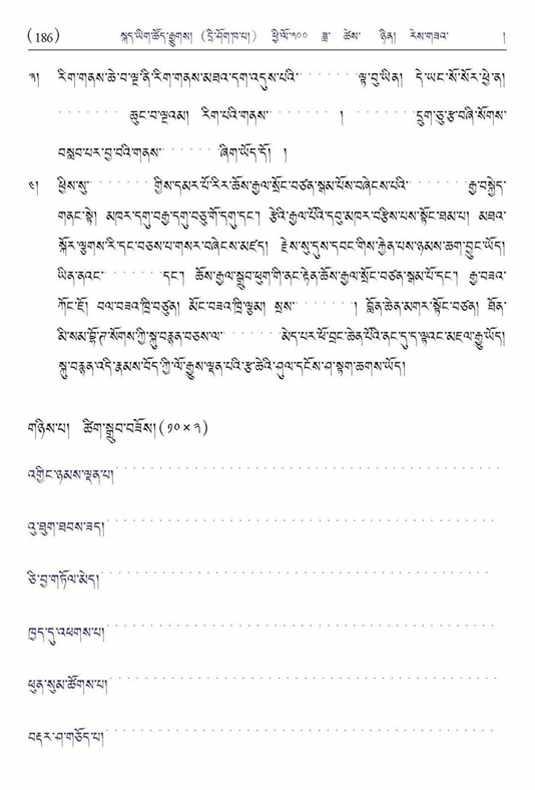 (186) སྐད་ཡིག་ཚོད་རྒྱུགས། (དྲི་ཤོག་ཁ་པ།) ཕྱི་ལོ་༢༠༠ ཟླ་ ཚེས་ ཉིན། རེས་གཟའ་ །
༣། རིག་གནས་ཆེ་བ་ལྔ་ནི་རིག་གནས་མཐའ་དག་འདུས་པའི་ · · · · · · ལྟ་བུ་ཡིན། དེ་ཡང་སོ་སོར་ཕྱེ་ན།
· · · · · · · ཆུང་བ་ལྔའམ། རིག་པའི་གནས་ · · · · · · · ། · · · · · · · དྲུག་ཅུ་རྩ་བཞི་སོགས་
བསླབ་པར་བྱ་བའི་གནས་ · · · · · · ཞིག་ཡོད་དོ། །
༤། ཕྱིས་སུ་ · · · · · · · གྱིས་དམར་པོ་རིར་ཆོས་རྒྱལ་སྲོང་བཙན་སྒམ་པོས་བཞེངས་པའི་ · · · · · · · རྒྱ་བསྐྱེད་
གནང་སྟེ། མཁར་དགུ་བརྒྱ་དགུ་བཅུ་གོ་དགུ་དང་། རྩེའི་རྒྱལ་པོའི་དབུ་མཁར་བརྩིས་པས་སྟོང་ཐམ་པ། མཐའ་
སྐོར་ལྕགས་རི་དང་བཅས་པ་གསར་བཞེངས་མཛད། རྗེས་སུ་དུས་དབང་གིས་རྐྱེན་པས་ཉམས་ཆག་བྱུང་ཡོད།
ཡིན་ནའང་ · · · · · · · དང་། ཆོས་རྒྱལ་སྒྲུབ་ཕུག་གི་ནང་རྟེན་ཆོས་རྒྱལ་སྲོང་བཙན་སྒམ་པོ་དང་། རྒྱ་བཟའ་
ཀོང་ཇོ། བལ་བཟའ་ཁྲི་བཙུན། མོང་བཟའ་ཁྲི་ལྕམ། སྲས་ · · · · · · · ། བློན་ཆེན་མགར་སྟོང་བཙན། ཐོན་
མི་སམ་བྷོ་ཊ་སོགས་ཀྱི་སྐུ་བརྙན་བཅས་ལ་ · · · · · · · མེད་པར་ཕོ་བྲང་ཆེན་པོའི་ནང་དུ་ད་ལྟའང་མཇལ་རྒྱུ་ཡོད།
སྐུ་བརྙན་འདི་རྣམས་བོད་ཀྱི་ལོ་རྒྱུས་ལྡན་པའི་རྩ་ཆེའི་ཤུལ་དངོས་ཤ་སྟག་ཆགས་ཡོད།
གཉིས་པ། ཚིག་སྒྲུབ་བཟོས། (༡༠ × ༢)
འགྱིང་ཉམས་ལྡན་པ།
འུ་ཐུག་ཐབས་ཟད།
ཅི་བྱ་གཏོལ་མེད།
ཁྱད་དུ་འཕགས་པ།
ཕུན་སུམ་ཚོགས་པ།
བརྡར་ཤ་གཅོད་པ།